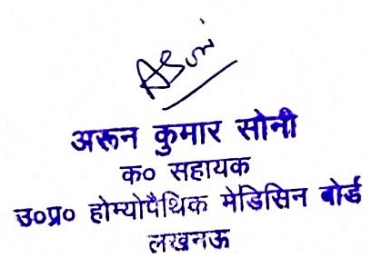 अरून कुमार सोनी
क० सहायक
उ०प्र० होम्योपैथिक मेडिसिन बोर्ड
लखनऊ